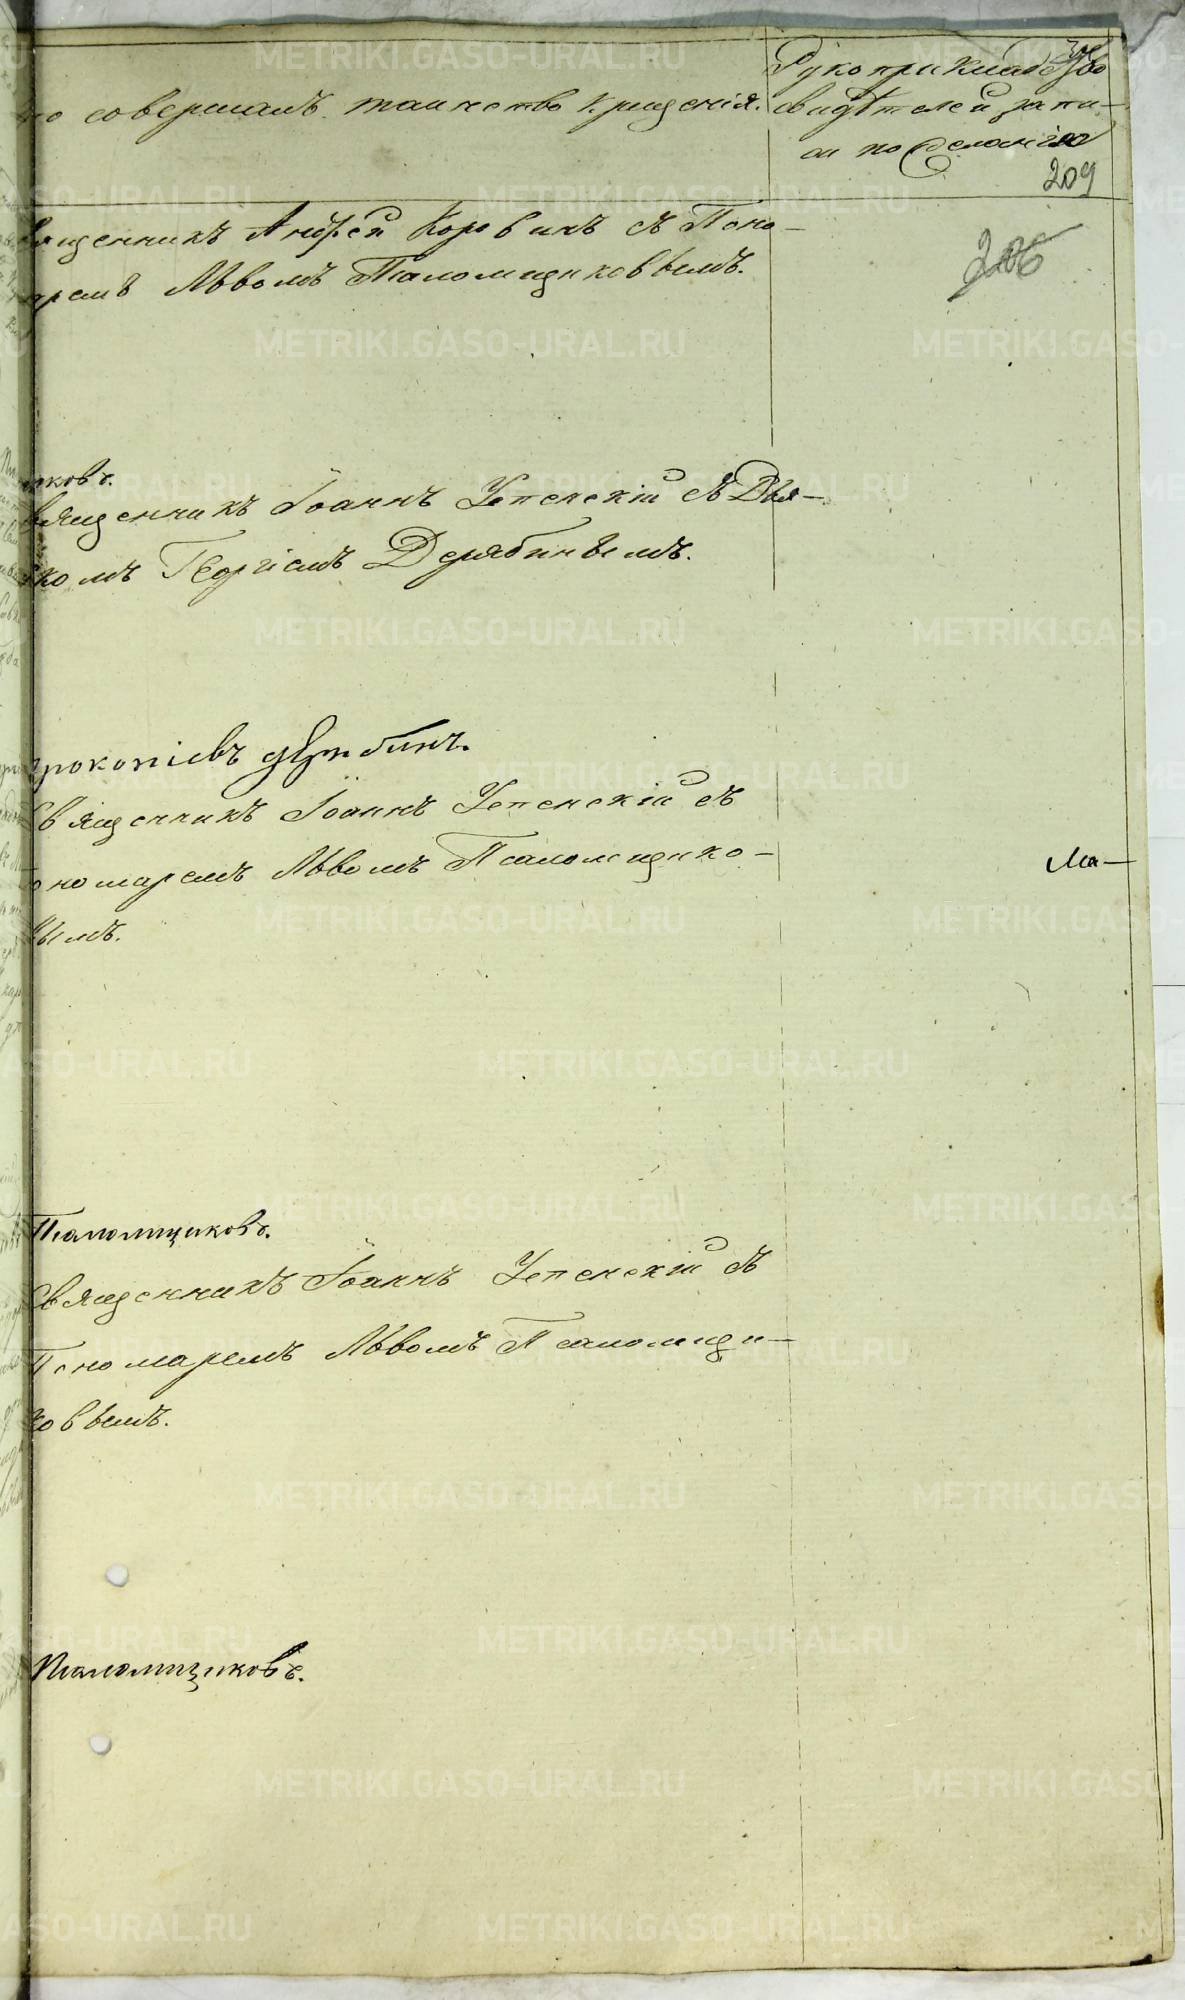 то совершалъ таинство крещенія.
Рукоприкладство
свидѣтелей запи-
си по желанію
209
206
Священникъ Андрей Коровинъ съ Поно-
маремъ Львомъ Псаломщиковымъ.
иковъ.
Священникъ Іоаннъ Успенскій съ Дья-
комъ Георгіемъ Дерябинымъ.
Прокопіевъ
Священникъ Іоаннъ Успенскій съ
Пономаремъ Львомъ Псаломщико-
вымъ.
Ма-
Псаломщиковъ.
Священникъ Іоаннъ Успенскій съ
Пономаремъ Львомъ Псаломщи-
ковымъ.
Псаломщиковъ.
METRIKI.GASO-URAL.RU